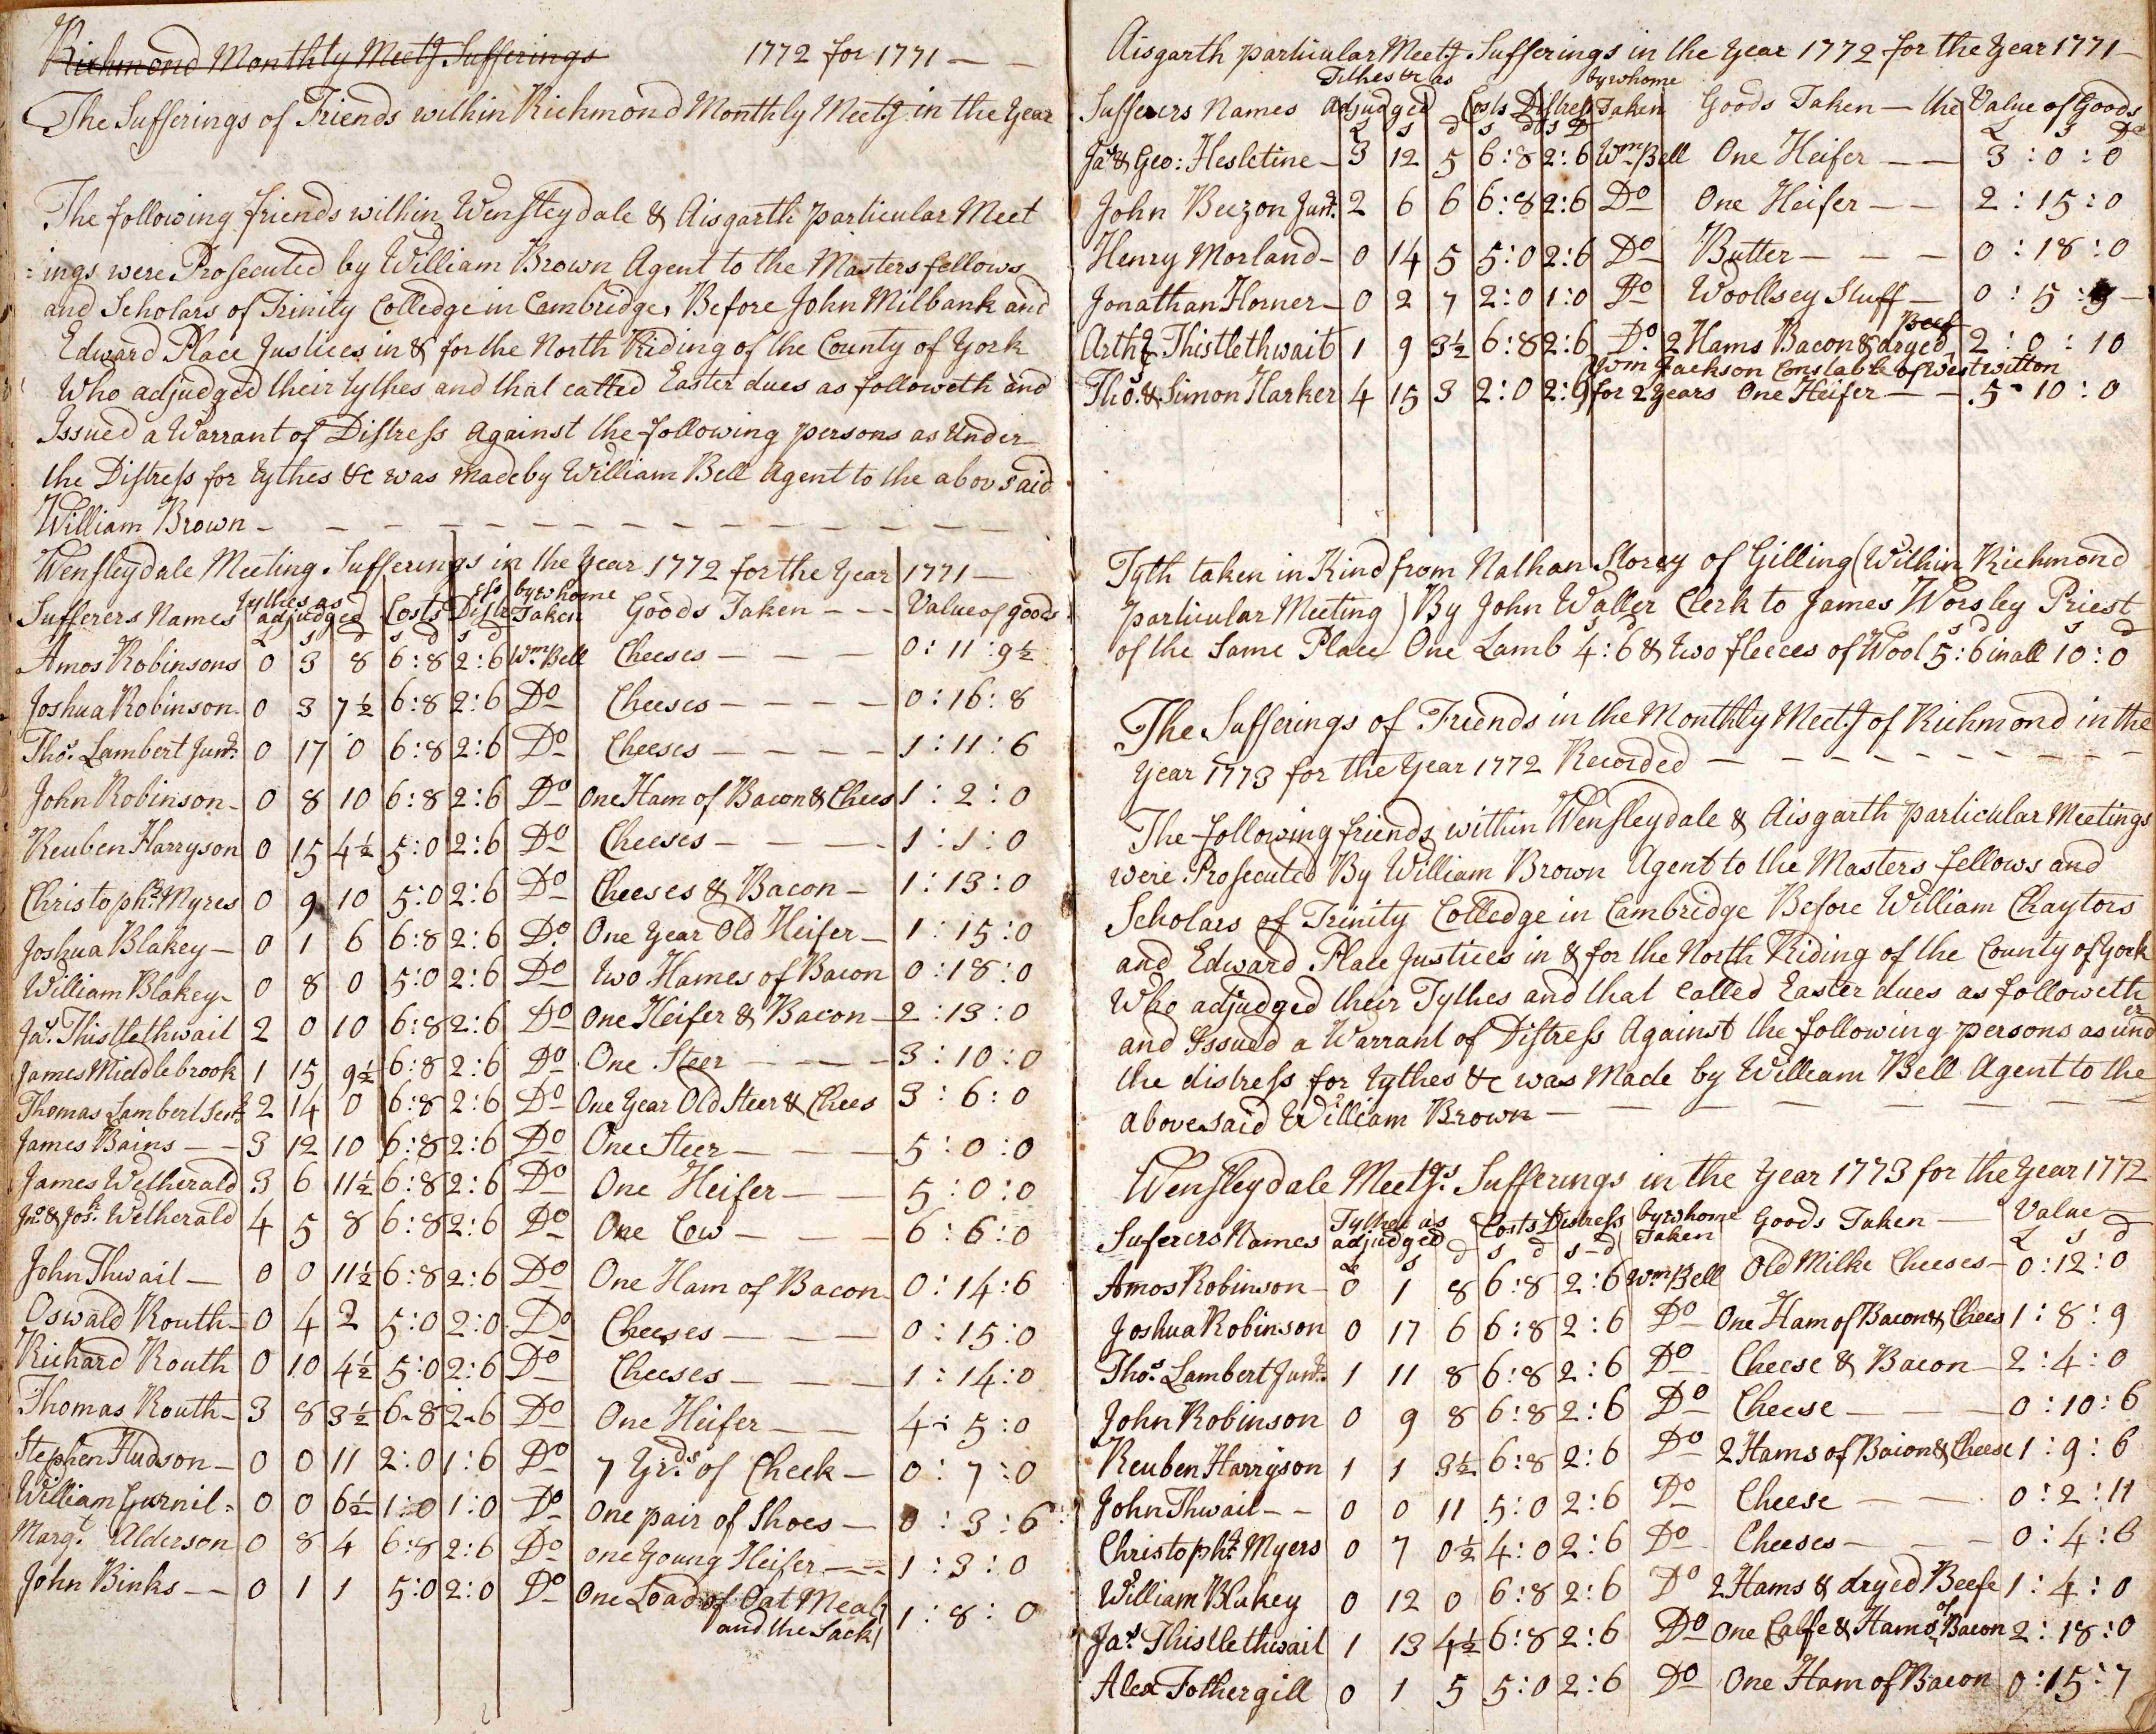 Richmond Monthly Meetg Sufferings 1772 for 1771 — —
The Sufferings of Friends within Richmond Monthly Meetg in the Year
The following friends within Wensleydale & Aisgarth particular Meet
=ings were Prosecuted by William Brown Agent to the Masters fellows
and Scholars of Trinity Colledge in Cambridge, Before John Milbank and
Edward Place Justices in & for the North Riding of the County of York
Who adjudged their tythes and that called Easter dues as followeth and
Issued a Warrant of Distress Against the following persons as Under
the Distress for tythes &c was made by William Bell Agent to the abov said
William Brown — — — — — — — — — — — — —
Wensleydale Meeting Sufferings in the Year 1772 for the Year 1771 —
Sufferers Names tythes as adjudged Costs Distrs by whome Taken Goods Taken — — — Value of goods
£ s d s d s d
Amos Robinsons 0 3 8 6:8 2:6 Wm Bell Cheeses — — — 0:11:9½
Joshua Robinson 0 3 7½ 6:8 2:6 Do Cheeses — — — — 0:16:8
Thos. Lambert Junr. 0 17 0 6:8 2:6 Do Cheeses — — — — 1:11:6
John Robinson — 0 8 10 6:8 2:6 Do One Ham of Bacon & Chees 1:2:0
Reuben Harryson 0 15 4½ 5:0 2:6 Do Cheeses — — — 1:1:0
Christophr. Myres 0 9 10 5:0 2:6 Do Cheeses & Bacon — 1:13:0
Joshua Blakey — 0 1 6 6:8 2:6 Do. One Year Old Heifer — 1:15:0
William Blakey — 0 8 0 5:0 2:6 Do two Hames of Bacon 0:18:0
Jas. Thistlethwait 2 0 10 6:8 2:6 Do One Heifer & Bacon — 2:13:0
James Middlebrook 1 15 9½ 6:8 2:6 Do One Steer — — — 3:10:0
Thomas Lambert Senr 2 14 0 6:8 2:6 Do One Year Old Steer & Chees 3:6:0
James Bains — — 3 12 10 6:8 2:6 Do One Steer — — — 5:0:0
James Wetherald 3 6 11½ 6:8 2:6 Do One Heifer — — 5:0:0
Jno & Josh. Wetherald 4 5 8 6:8 2:6 Do One Cow — — — 6:6:0
John Thwait — 0 0 11½ 6:8 2:6 Do One Ham of Bacon 0:14:6
Oswald Routh — 0 4 2 5:0 2:0 Do Cheeses — — — 0:15:0
Richard Routh 0 10 4½ 5:0 2:6 Do Cheeses — — — 1:14:0
Thomas Routh — 3 8 3½ 6-8 2-6 Do One Heifer — — 4:5:0
Stephen Hudson — 0 0 11 2:0 1:6 Do 7 Yrds. of Check — 0:7:0
William Gurnil = 0 0 6½ 1:0 1:0 Do One pair of Shoes — 0:3:6
Margt. Alderson 0 8 4 6:8 2:6 Do one Young Heifer — — 1:3:0
John Binks — — 0 1 1 5:0 2:0 Do One Load of Oat Meal
and the Sack 1:8:0
Aisgarth particular Meetg. Sufferings in the Year 1772 for the Year 1771 —
Sufferers Names Tithes &c as adjudged Costs Distress by whome Taken Goods Taken — the Value of Goods
£ s d s d s D £ s D
Jas & Geo: Hesletine — 3 12 5 6:8 2:6 Wm Bell One Heifer — — 3:0:0
John Beezon Junr. 2 6 6 6:8 2:6 Do One Heifer — — 2:15:0
Henry Morland — 0 14 5 5:0 2:6 Do Butter — — — 0:18:0
Jonathan Horner — 0 2 7 2:0 1:0 Do Woollsey Stuff — 0:5:9 —
Arthr. Thistlethwait 1 9 3½ 6:8 2:6 Do. 2 Hams Bacon & dryed Beef 2:0:10
Wm Jackson Constable of West witton
Thos. & Simon Harker 4 15 3 2:0 2:6 for 2 years One Heifer — — 5-10:0
Tyth taken in Kind from Nathan Storey of Gilling (Within Richmond
particular Meeting) By John Waller Clerk to James Worsley Priest
of the Same Place One Lamb 4s:6d & two fleeces of Wool 5s:6d in all 10s:0d
The Sufferings of Friends in the Monthly Meetg of Richmond in the
Year 1773 for the Year 1772 Recorded — — — — — — — —
The following friends within Wensleydale & Aisgarth particular Meetings
were Prosecuted By William Brown Agent to the Masters fellows and
Scholars of Trinity Colledge in Cambridge Before William Chaytors
and Edward Place Justices in & for the North Riding of the County of York
Who adjudged their Tythes and that called Easter dues as followeth
and Issued a Warrant of Distress Against the following persons as under
the distress for tythes &c was Made by William Bell Agent to the
above said William Brown — — — — — — — —
Wensleydale Meetgs. Sufferings in the Year 1773 for the Year 1772
Suferers Names Tythes as adjudged Costs Distress by whome Taken Goods Taken — Value
£ s d s d s-d £ s d
Amos Robinson — 0 1 8 6:8 2:6 Wm Bell Old Milke Cheeses — 0:12:0
Joshua Robinson 0 17 6 6:8 2:6 Do One Ham of Bacon & Chees 1:8:9
Thos. Lambert Junr. 1 11 8 6:8 2:6 Do Cheese & Bacon — 2:4:0
John Robinson 0 9 8 6:8 2:6 Do Cheese — — — 0:10:6
Reuben Harryson 1 1 3½ 6:8 2:6 Do 2 Hams of Bacon & Cheese 1:9:6
John Thwait — — 0 0 11 5:0 2:6 Do Cheese — — 0:2:11
Christophr. Myers 0 7 0½ 4:0 2:6 Do Cheeses — — — 0:4:6
William Blakey 0 12 0 6:8 2:6 Do 2 Hams & dryed Beefe 1:4:0
Jas. Thistlethwait 1 13 4½ 6:8 2:6 Do One Calfe & Hams of Bacon 2:18:0
Alex Fothergill 0 1 5 5:0 2:6 Do One Ham of Bacon 0:15:7